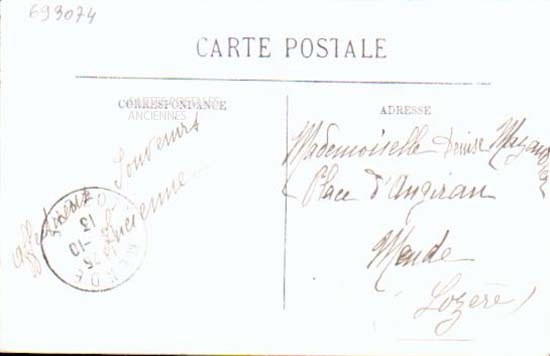 693074
CARTE POSTALE
CORRESPONDANCE
CARTES POSTALES
ANCIENNES
ADRESSE
Affectueux Souvenirs
Lucienne
Mademoiselle Denise
Place d'Angiran
Mende
(Lozère)
13
-10